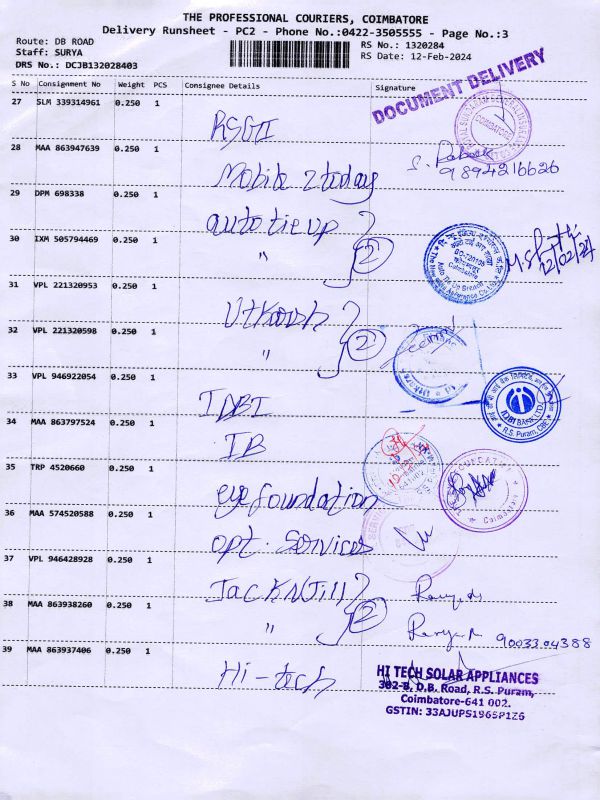 THE PROFESSIONAL COURIERS, COIMBATORE
Delivery Runsheet - PC2 - Phone No.:0422-3505555 - Page No.:3
Route: DB ROAD
Staff: SURYA
DRS No.: DCJB132028403
RS No.: 1320284
RS Date: 12-Feb-2024
S No Consignment No Weight PCS Consignee Details Signature
DOCUMENT DELIVERY
27 SLM 339314961 0.250 1 RSGI
COIMBATORE
28 MAA 863947639 0.250 1 Mobile 2 today
9894216626
29 DPM 698338 0.250 1 auto tie up
30 IXM 505794469 0.250 1 " 2
12/02/24
31 VPL 221320953 0.250 1 Utkarsh
32 VPL 221320598 0.250 1 " 2
33 VPL 946922054 0.250 1 IDBI
IDBI BANK LTD.
R.S. Puram, CBE
34 MAA 863797524 0.250 1 IB
35 TRP 4520660 0.250 1 eye foundation
Coimbatore
36 MAA 574520588 0.250 1 opt. services
37 VPL 946428928 1 Jac KN(Jill)
38 MAA 863938260 0.250 1 " 2
9003304388
39 MAA 863937406 0.250 1 Hi-tech
HI TECH SOLAR APPLIANCES
382-B, D.B. Road, R.S. Puram,
Coimbatore-641 002.
GSTIN: 33AJUPS1965P1Z6